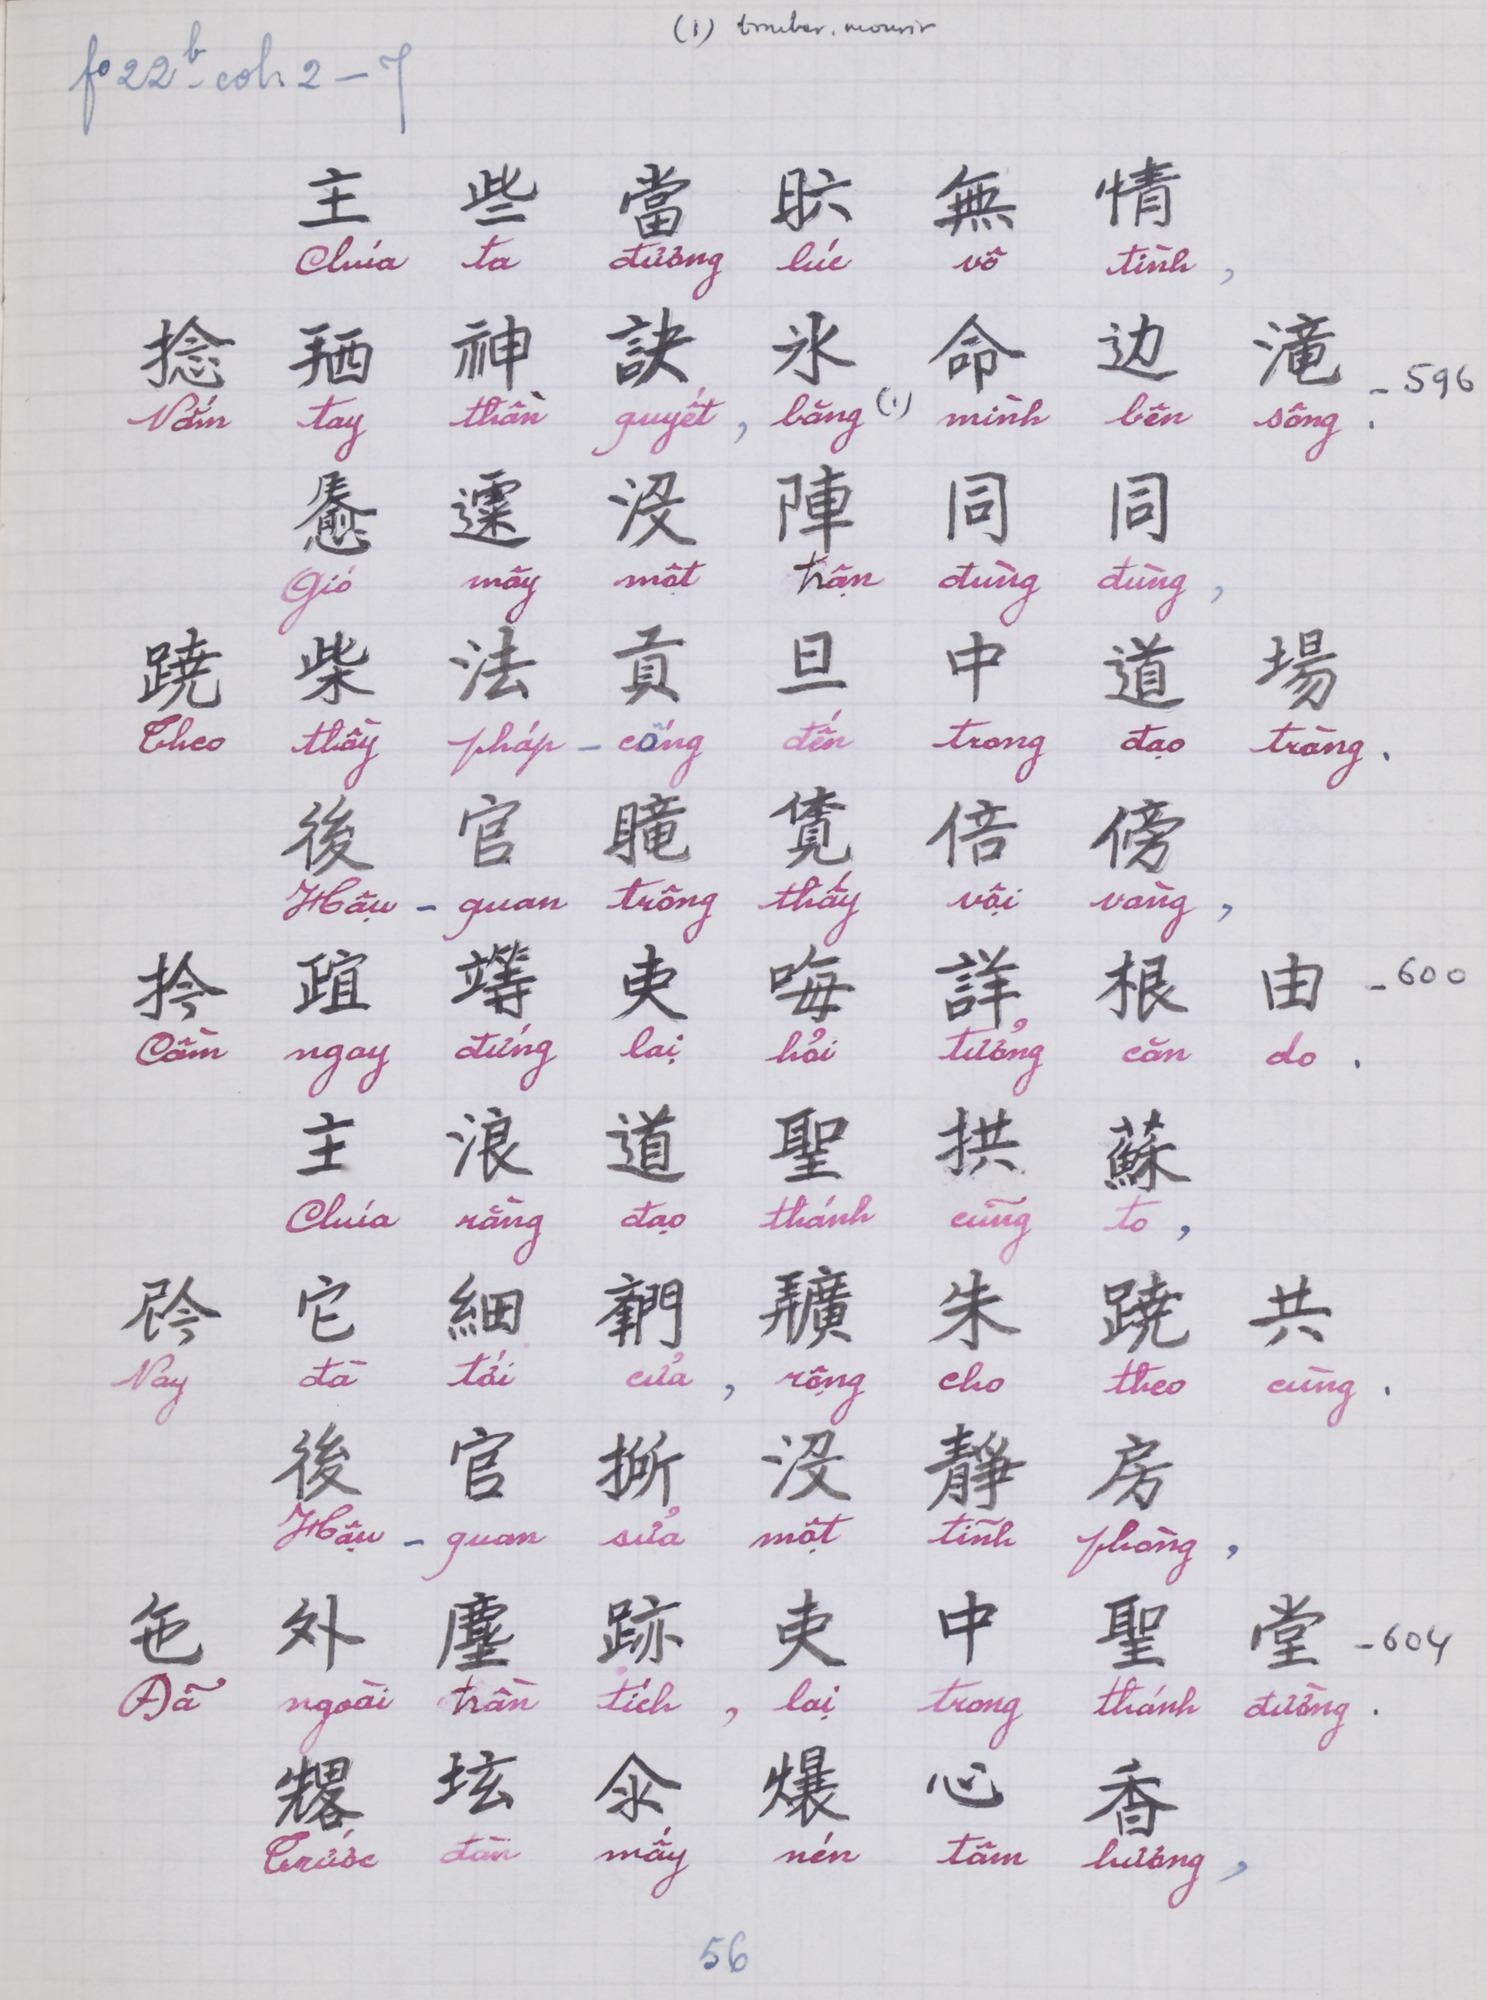 (1) tomber, mourir
fo 22b - col. 2 - 7
主 些 當 𣅶 無 情
Chúa ta đương lúc vô tình,
捻 𢬣 神 訣 氷 命 边 滝 - 596
Nắm tay thần quyết, băng (1) mình bên sông.
𫗄 𩄲 沒 陣 同 同
Gió mây một trận đùng đùng,
蹺 柴 法 貢 旦 中 道 場
Theo thầy pháp - cống đến trong đạo tràng.
後 官 𥉫 𧡊 倍 傍
Hậu - quan trông thấy vội vàng,
扲 𣦍 𨅸 吏 𠳨 詳 根 由 - 600
Cầm ngay đứng lại hỏi tưởng căn do.
主 浪 道 聖 拱 蘇
Chúa rằng đạo thánh cũng to,
𫢩 它 細 𨷯 𢌌 朱 蹺 共
Nay đà tới cửa, rộng cho theo cùng.
後 官 𢯢 沒 靜 房
Hậu - quan sửa một tĩnh phòng,
㐌 外 塵 跡 吏 中 聖 堂 - 604
Đã ngoài trần tích, lại trong thánh đường.
𠓀 坛 𠇍 爆 心 香
Trước đàn mấy nén tâm hương,
56